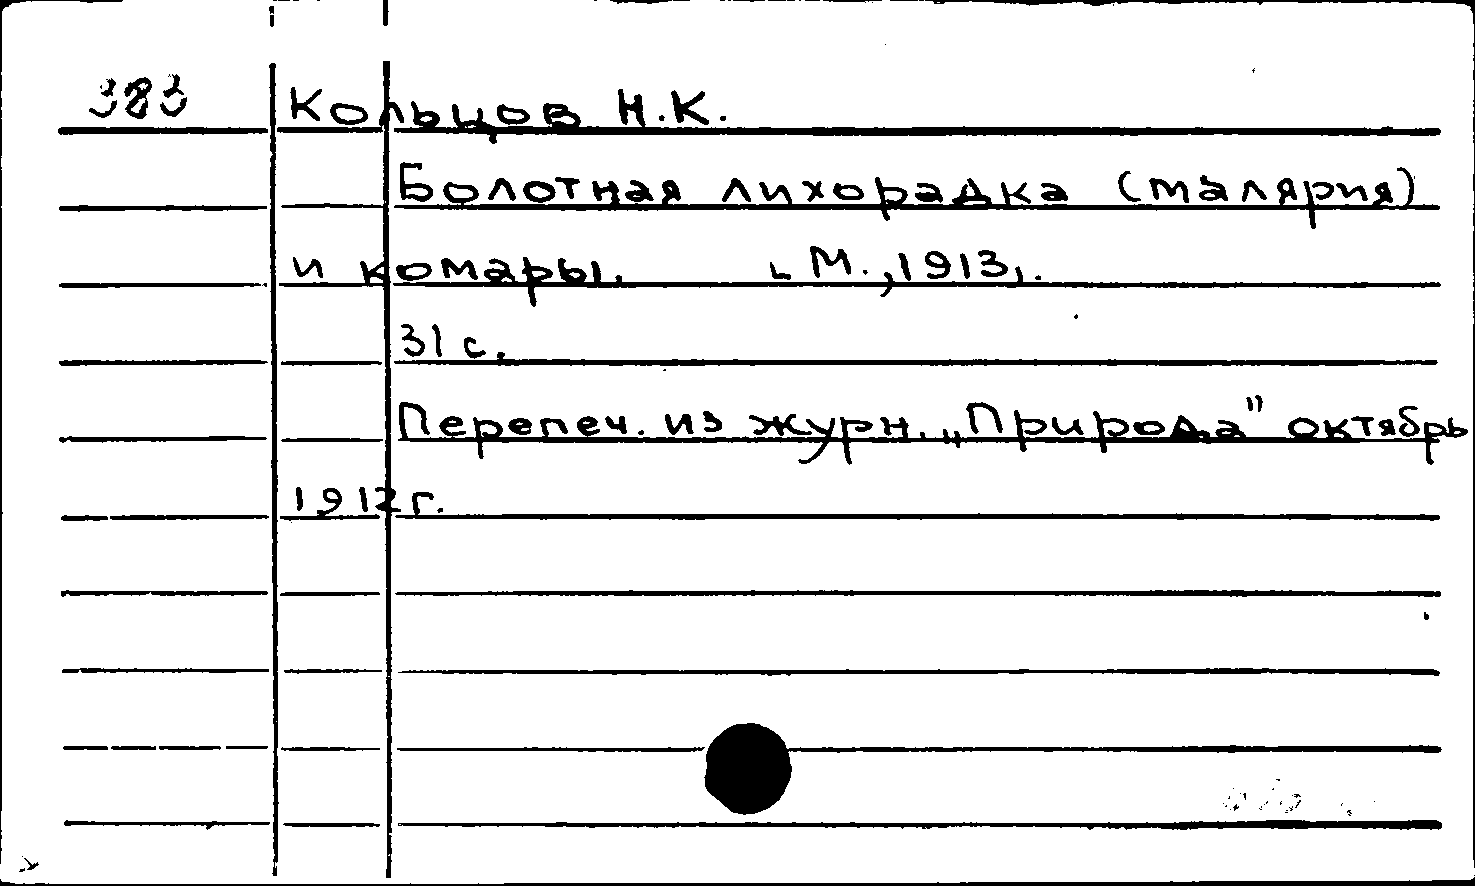 383 Кольцов Н.К.
Болотная лихорадка (малярия)
и комары. М., 1913.
31 с.
Перепеч. из журн. „Природа" октябрь
1912 г.